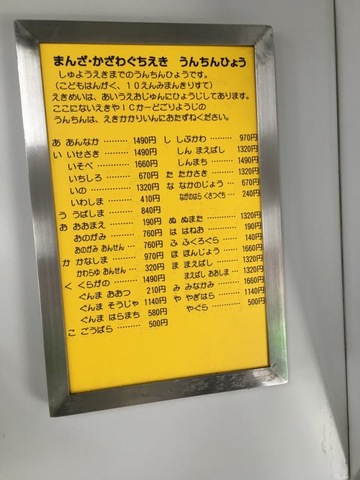 まんざ・かざわぐちえき　うんちんひょう
しゅようえきまでのうんちんひょうです。
（こどもはんがく、１０えんみまんきりすて）
えきめいは、あいうえおじゅんにひょうじしてあります。
ここにないえきやＩＣかーどごりようじの
うんちんは、えきかかりいんにおたずねください。
あ あんなか ……… 1490円
い いせさき ……… 1490円
いそべ ……… 1660円
いちしろ ……… 670円
いの ……… 1320円
いわしま ……… 410円
う うばしま ……… 840円
お おおまえ ……… 190円
おのがみ ……… 760円
おのがみ おんせん … 760円
か かなしま ……… 970円
かわらゆ おんせん … 320円
く くらがの ……… 1490円
ぐんま おおつ 210円
ぐんま そうじゃ 1140円
ぐんま はらまち 580円
こ ごうばら ……… 500円
し しぶかわ ……… 970円
しん まえばし 1320円
しんまち ……… 1490円
た たかさき ……… 1320円
な なかのじょう … 670円
ながのはら くさつぐち … 240円
ぬ ぬまた ……… 1320円
は はねお ……… 190円
ふ ふくろぐら ……… 140円
ほ ほんじょう ……… 1660円
ま まえばし ……… 1320円
まえばし おおしま … 1320円
み みなかみ ……… 1660円
や やぎはら ……… 1140円
やぐら ……… 500円